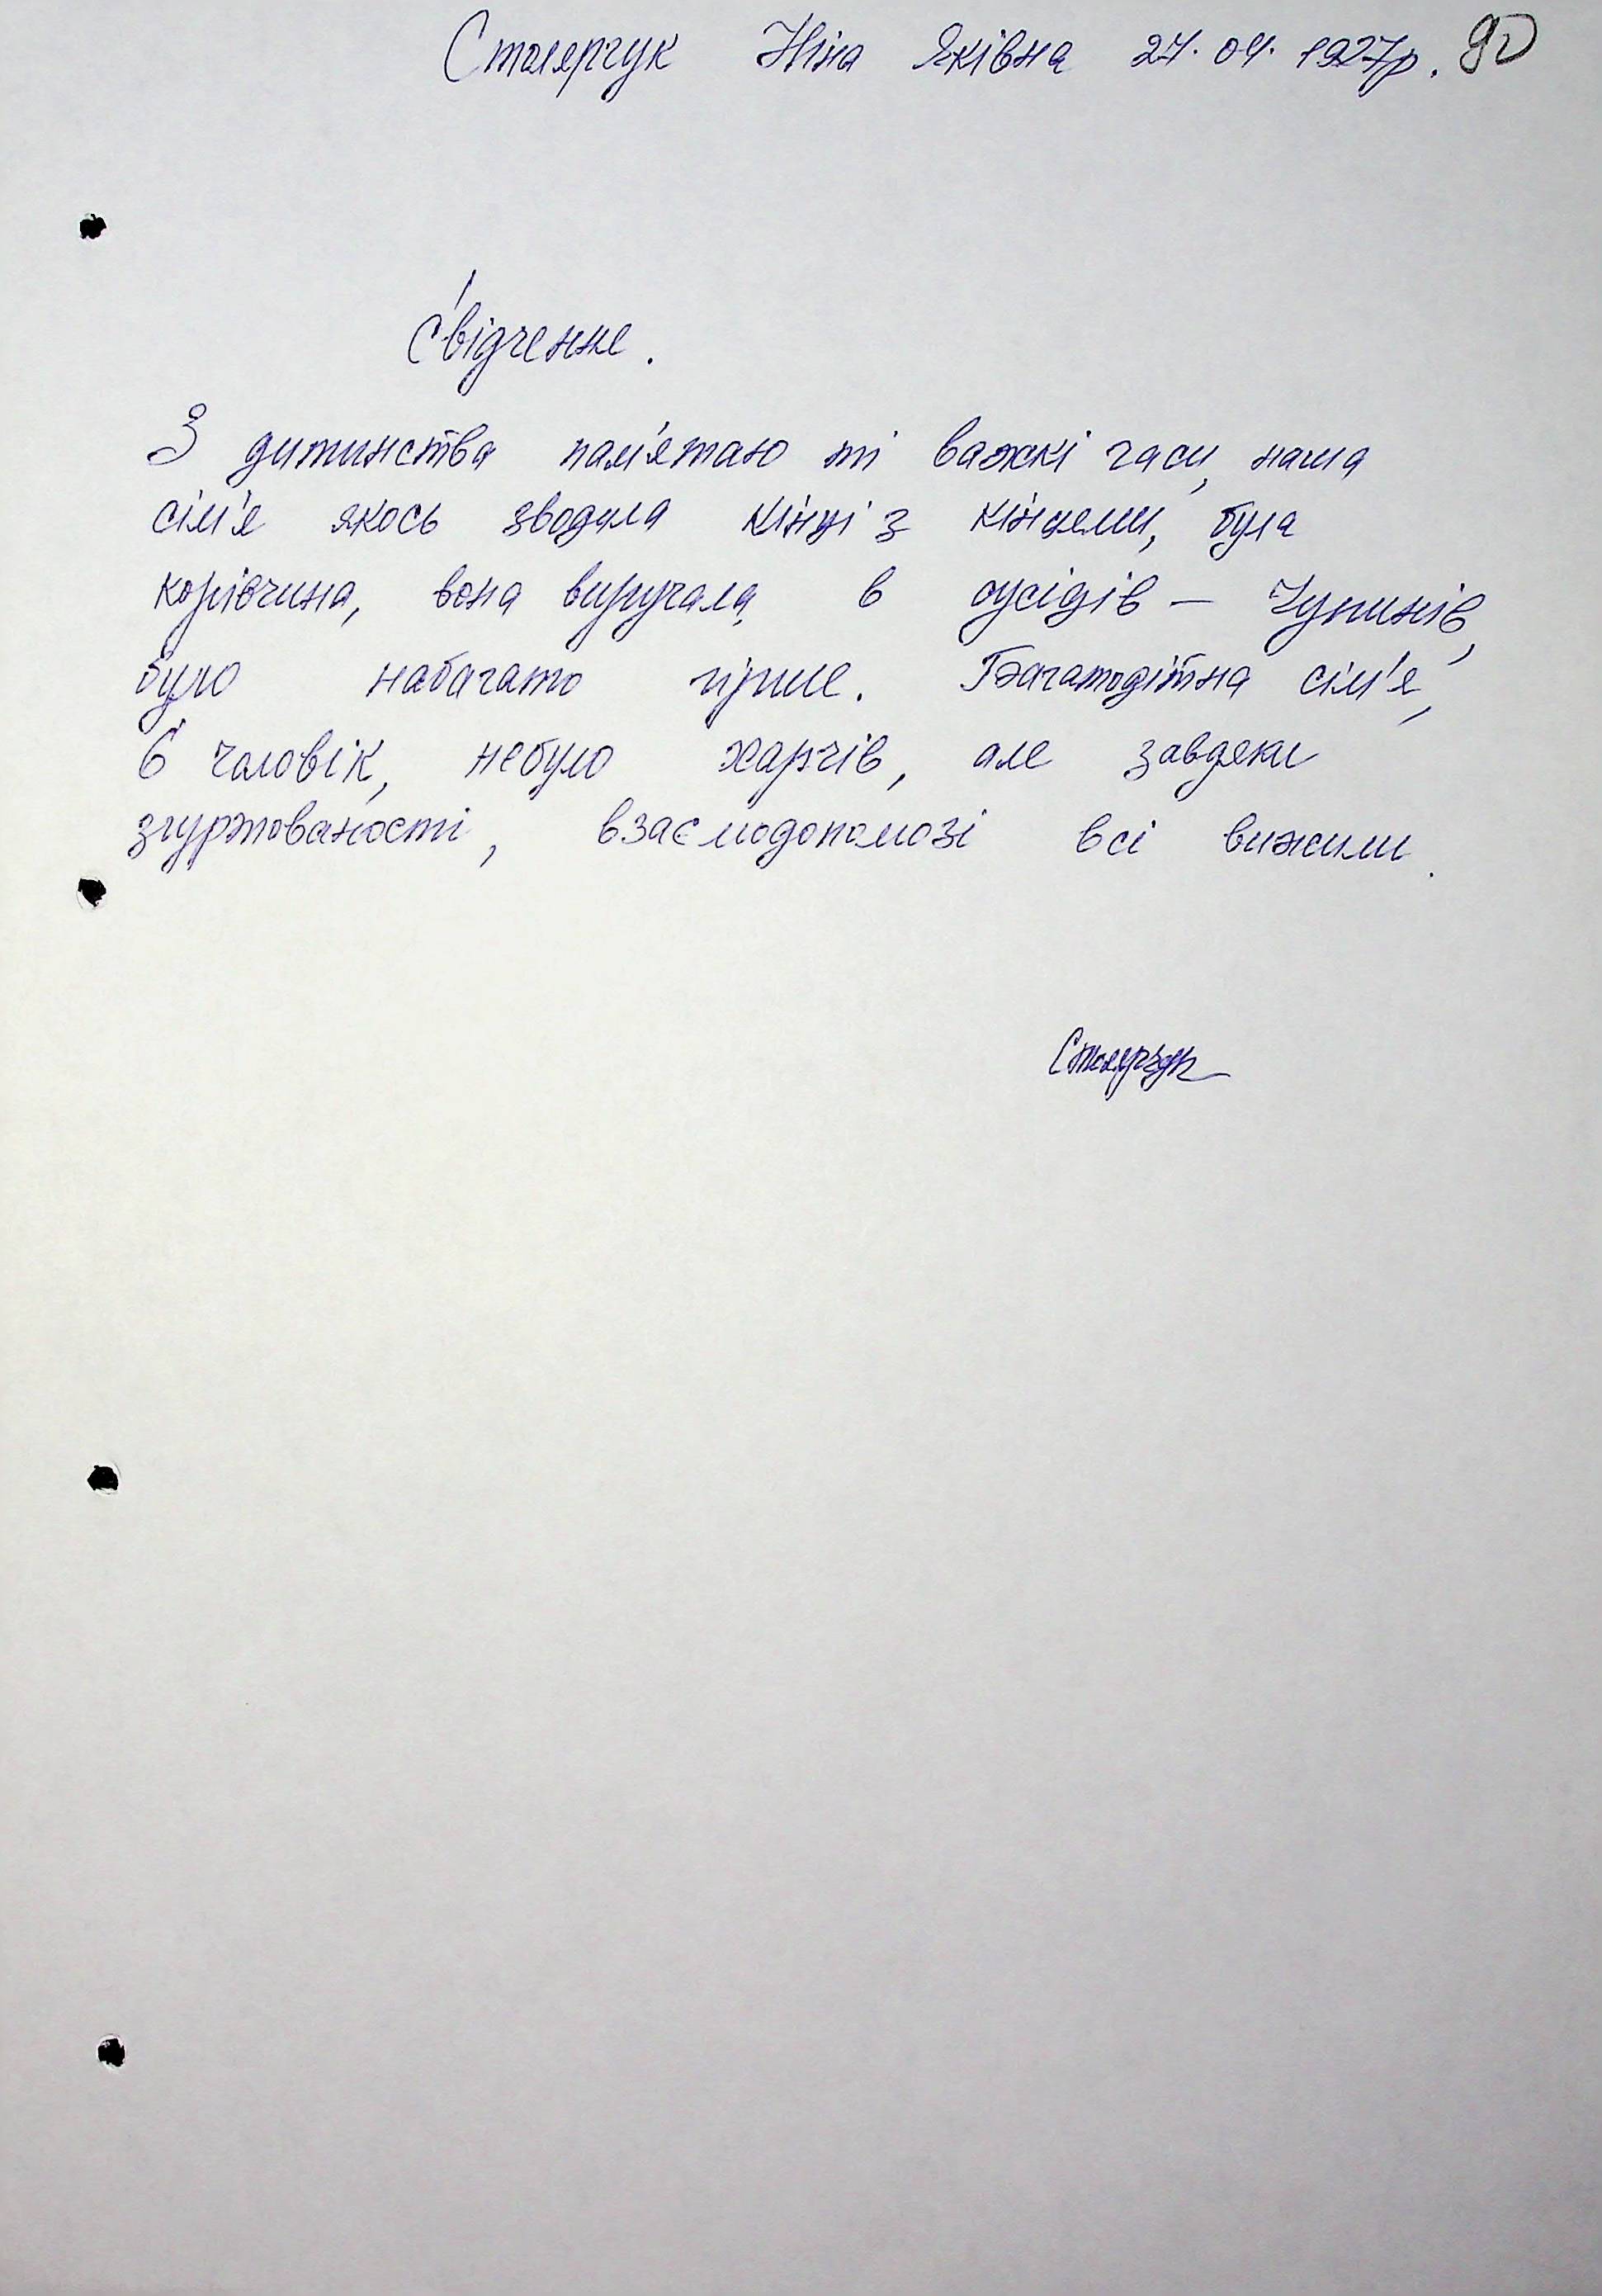 Столярчук Ніна Яківна 24.04.1927р. 90
Свідчення.
З дитинства пам'ятаю ті важкі часи, наша
сім'я якось зводила кінці з кінцями, була
корівчина, вона виручала, в сусідів – Чупинів,
було набагато гірше. Багатодітна сім'я,
6 чоловік, небуло харчів, але завдяки
згуртованості, взаємодопомозі всі вижили.
Столярчук